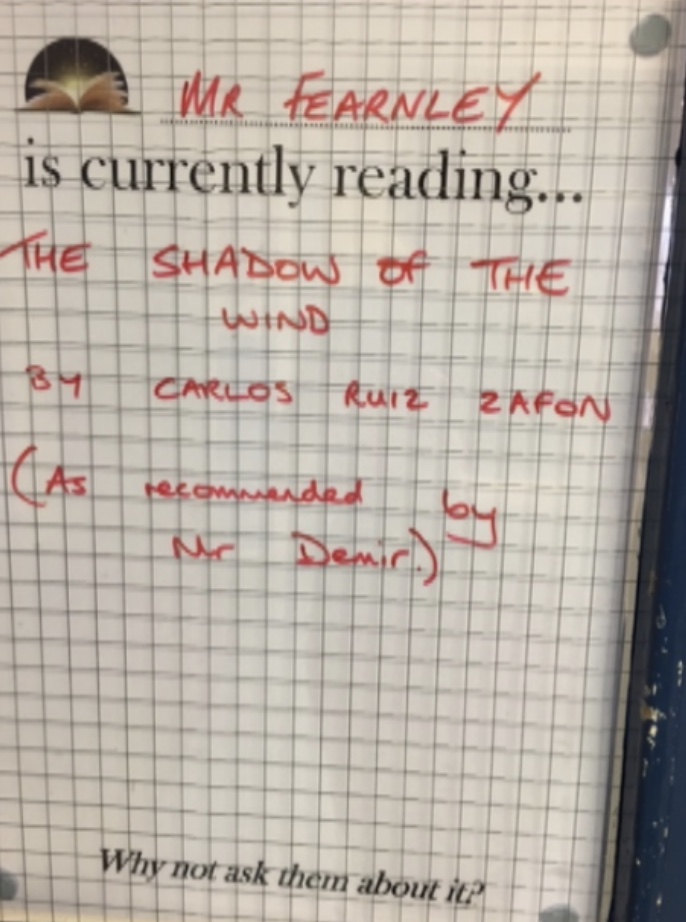 MR FEARNLEY
is currently reading...
THE SHADOW OF THE
WIND
BY CARLOS RUIZ ZAFON
(As recommended by
Mr Demir.)
Why not ask them about it?